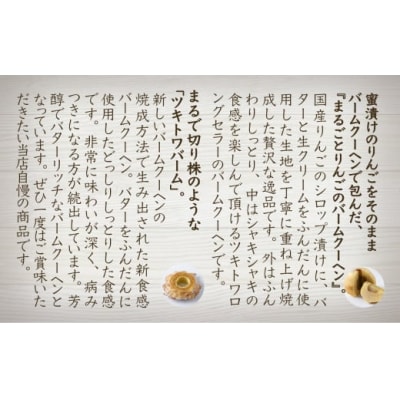 蜜漬けのりんごをそのまま
バームクーヘンで包んだ、
『まるごとりんごのバームクーヘン』。
国産りんごのシロップ漬けに、バ
ターと生クリームをふんだんに使
用した生地を丁寧に重ね上げ焼
成した贅沢な逸品です。外はふん
わりしっとり、中はシャキシャキの
食感を楽しんで頂けるツキトワロ
ングセラーのバームクーヘンです。
まるで切り株のような
「ツキトワバーム」。
新しいバームクーヘンの
焼成方法で生み出された新食感
バームクーヘン。バターをふんだんに
使用したどっしりしっとりした食感
です。非常に味わいが深く、病み
つきになる方が続出しています。芳
醇でバターリッチなバームクーヘンと
なっています。ぜひ一度はご賞味いた
だきたい当店自慢の商品です。